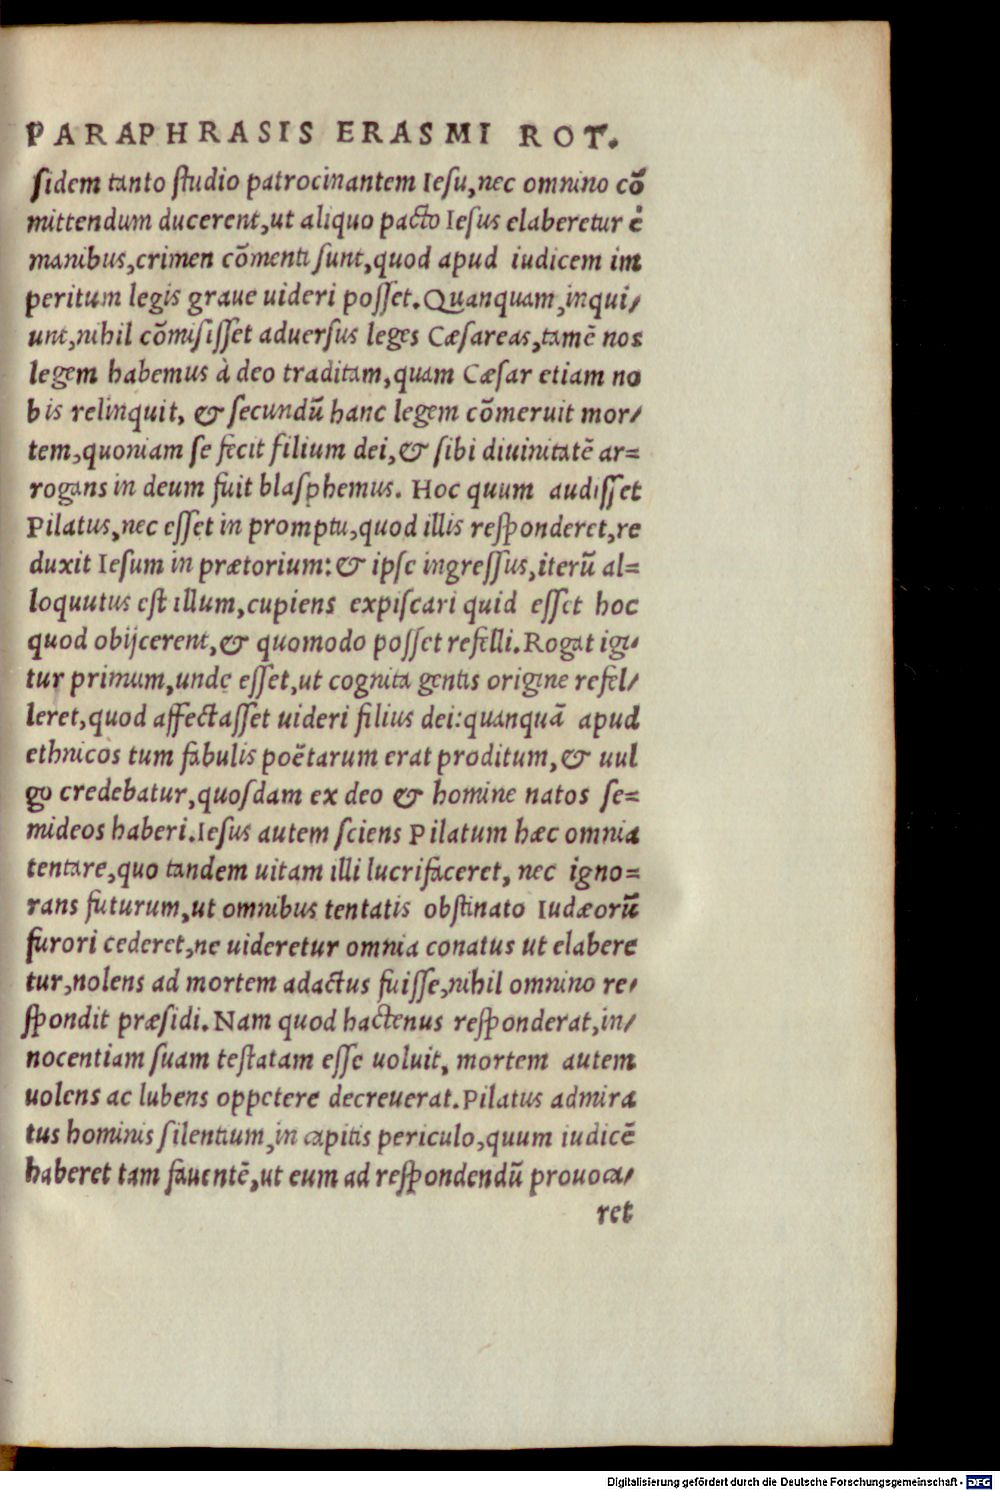 PARAPHRASIS ERASMI ROT.
sidem tanto studio patrocinantem Iesu, nec omnino cō
mittendum ducerent, ut aliquo pacto Iesus elaberetur è
manibus, crimen cōmenti sunt, quod apud iudicem im
peritum legis graue uideri posset. Quanquam, inqui-
unt, nihil cōmisisset aduersus leges Cæsareas, tamē nos
legem habemus à deo traditam, quam Cæsar etiam no
bis relinquit, & secundū hanc legem cōmeruit mor-
tem, quoniam se fecit filium dei, & sibi diuinitatē ar=
rogans in deum fuit blasphemus. Hoc quum audisset
Pilatus, nec esset in promptu, quod illis responderet, re
duxit Iesum in prætorium: & ipse ingressus, iterū al=
loquutus est illum, cupiens expiscari quid esset hoc
quod obijcerent, & quomodo posset refelli. Rogat igi-
tur primum, unde esset, ut cognita gentis origine refel-
leret, quod affectasset uideri filius dei: quanquā apud
ethnicos tum fabulis poëtarum erat proditum, & uul
go credebatur, quosdam ex deo & homine natos se=
mideos haberi. Iesus autem sciens Pilatum hæc omnia
tentare, quo tandem uitam illi lucrifaceret, nec igno=
rans futurum, ut omnibus tentatis obstinato Iudæorū
furori cederet, ne uideretur omnia conatus ut elabere
tur, nolens ad mortem adactus fuisse, nihil omnino re-
spondit præsidi. Nam quod hactenus responderat, in-
nocentiam suam testatam esse uoluit, mortem autem
uolens ac lubens oppetere decreuerat. Pilatus admira
tus hominis silentium, in capitis periculo, quum iudicē
haberet tam fauentē, ut eum ad respondendū prouoca-
ret
Digitalisierung gefördert durch die Deutsche Forschungsgemeinschaft - DFG